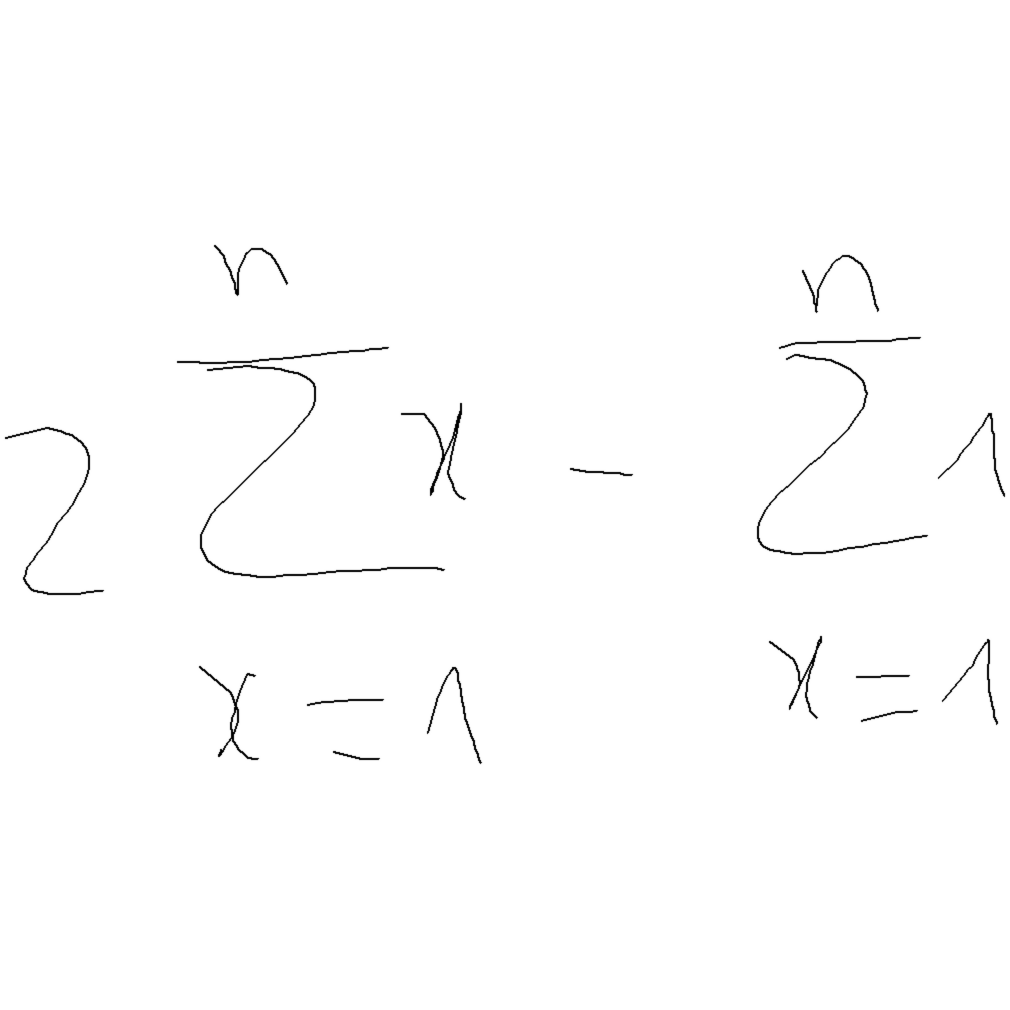 2 \sum_{x=1}^{n} x - \sum_{x=1}^{n} 1